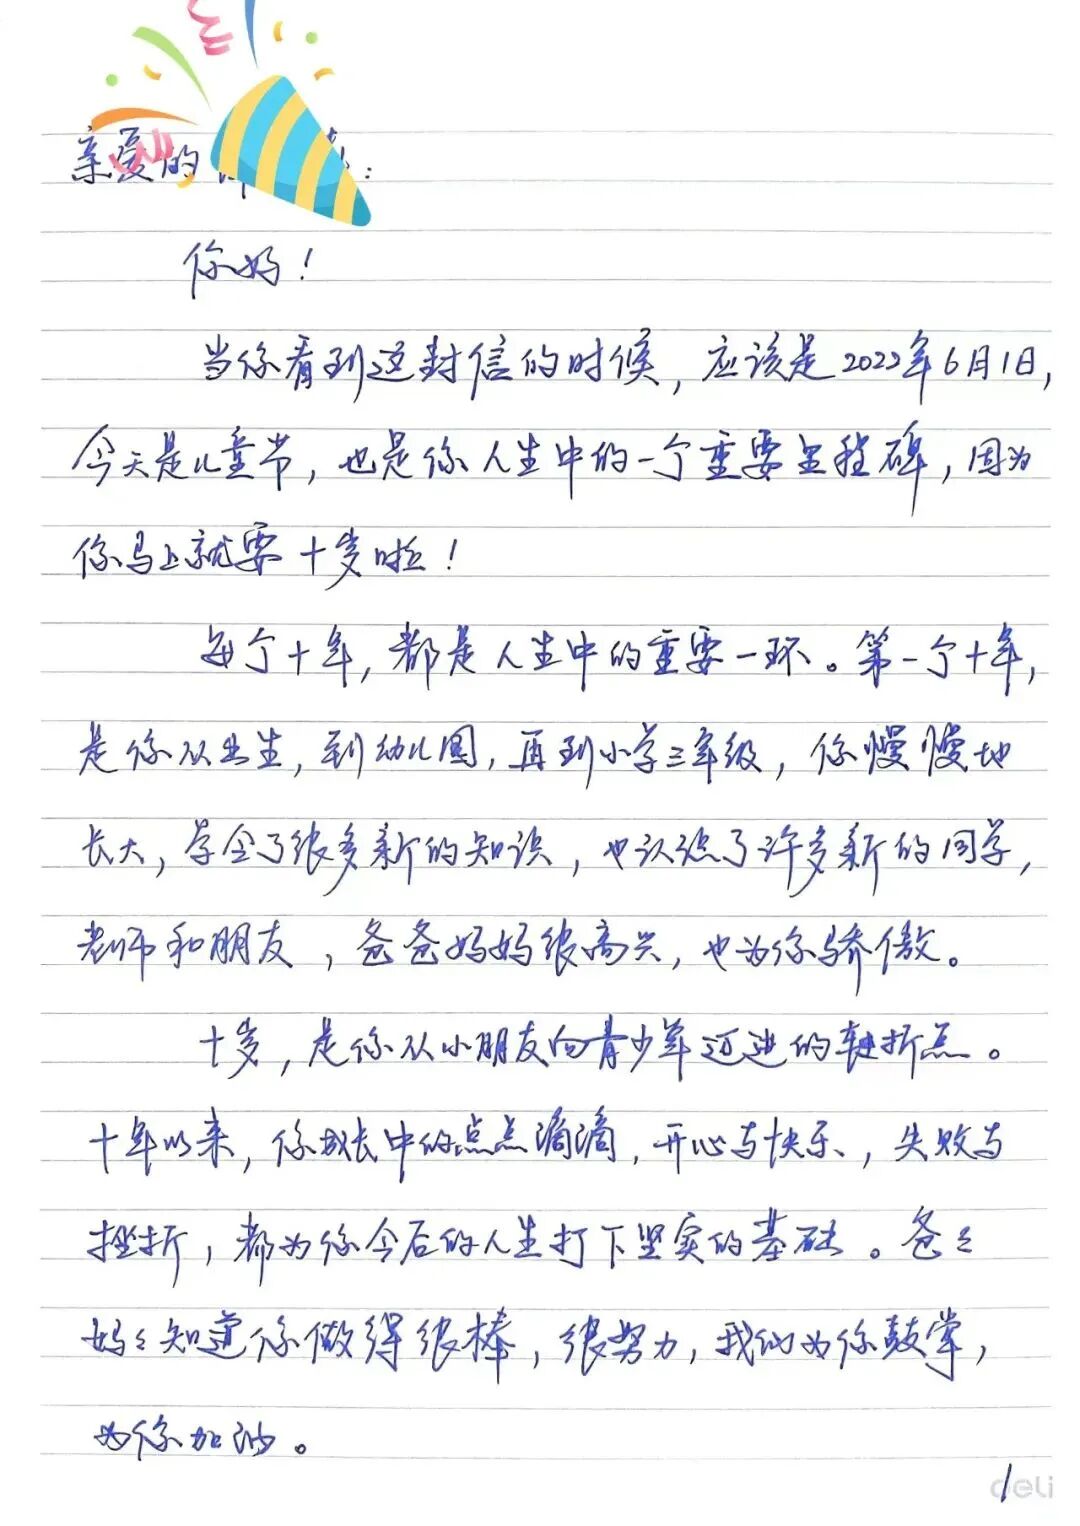 亲爱的：
你好！
当你看到这封信的时候，应该是2022年6月1日，
今天是儿童节，也是你人生中的一个重要里程碑，因为
你马上就要十岁啦！
每个十年，都是人生中的重要一环。第一个十年，
是你从出生，到幼儿园，再到小学三年级，你慢慢地
长大，学会了很多新的知识，也认识了许多新的同学，
老师和朋友，爸爸妈妈很高兴，也为你骄傲。
十岁，是你从小朋友向青少年迈进的转折点。
十年以来，你成长中的点点滴滴，开心与快乐，失败与
挫折，都为你今后的人生打下坚实的基础。爸々
妈々知道你做得很棒，很努力，我们为你鼓掌，
为你加油。
1
deli